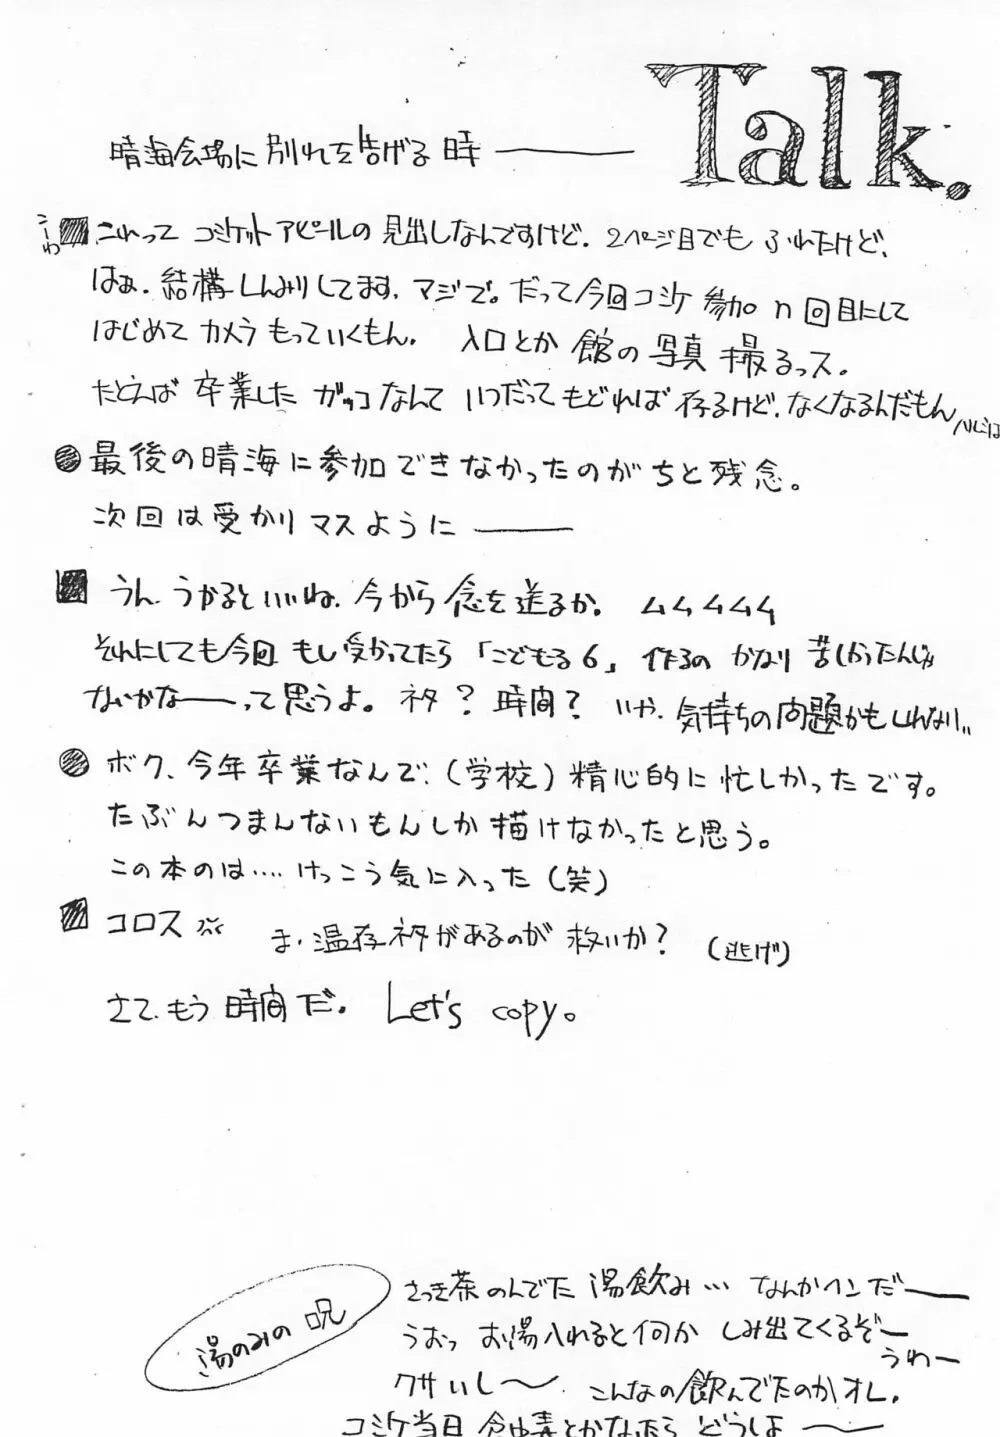 Talk.
晴海会場に別れを告げる時――
こーわ
これって コミケットアピールの見出しなんですけど. 2ページ目でも ふれたけど、
はぁ. 結構しんみりしてます. マジで。だって今回コミケ参加n回目にして
はじめて カメラもっていくもん. 入口とか 館の写真 撮るっス。
たとえば 卒業した ガッコなんて いつだって もどれば 存るけど. なくなるんだもん
●最後の晴海に参加できなかったのがちと残念。
次回は受かりマスように――
うん. うかるといいね. 今から 念を送るか. ムムムムム
それにしても今回 もし受かってたら「こどもる6」作るの かなり 苦しかったんじゃ
ないかなーーって思うよ。ネタ? 時間? いや. 気持ちの問題かもしれない..
●ボク、今年卒業なんで、(学校)精心的に忙しかったです。
たぶんつまんないもんしか描けなかったと思う。
この本のは‥‥けっこう気に入った(笑)
コロス
ま. 温存ネタがあるのが 救いか? (逃げ)
さて. もう 時間だ. Let's copy。
湯のみの呪
さっき茶のんでた 湯飲み… なんかヘンだ――
うおっ お湯入れると何か しみ出てくるぞー
うわー
クサいし〜. こんなの飲んでたのかオレ.
コミケ当日 食中毒とかなったら どうしよ 〜